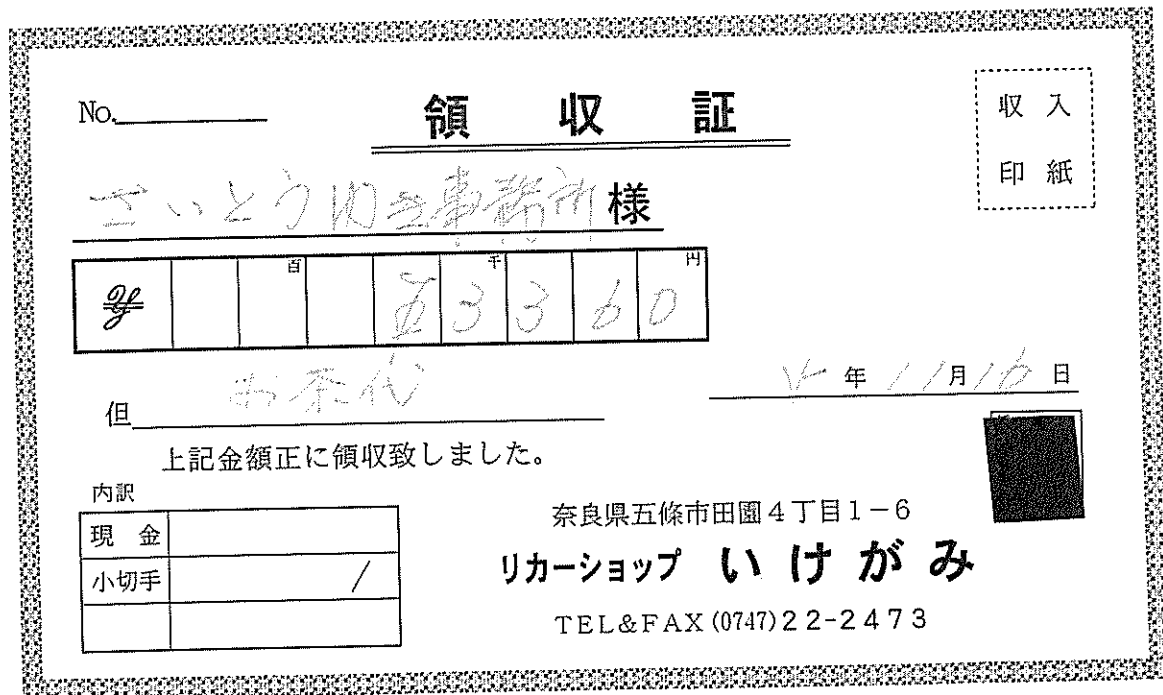 No.
領収証
収入
印紙
さいとう 事務所 様
百 千 円
¥ 3360
但 お茶代
年 11月16日
上記金額正に領収致しました。
内訳
現金
小切手
奈良県五條市田園4丁目1-6
リカーショップ いけがみ
TEL&FAX (0747)22-2473